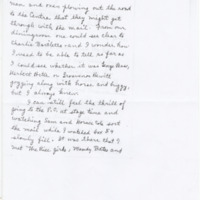 men and oxen plowing out the road
to the Centre that they might get
through with the mail. From our
diningroom one could see clear to
Charlie Bartlett's and I wonder how
I used to be able to tell as far as
I could see whether it was George Rose,
Herbert Hotte or Grosvenor Hewitt
jogging along with horse and buggy,
but I always knew.
I can still feel the thrill of going
to the P.O. at stage time and
watching Sam and Horace Cole sort
the mail while I watched box 89
slowly fill. It was there that I
met The Rice girls, Maudy Bates and